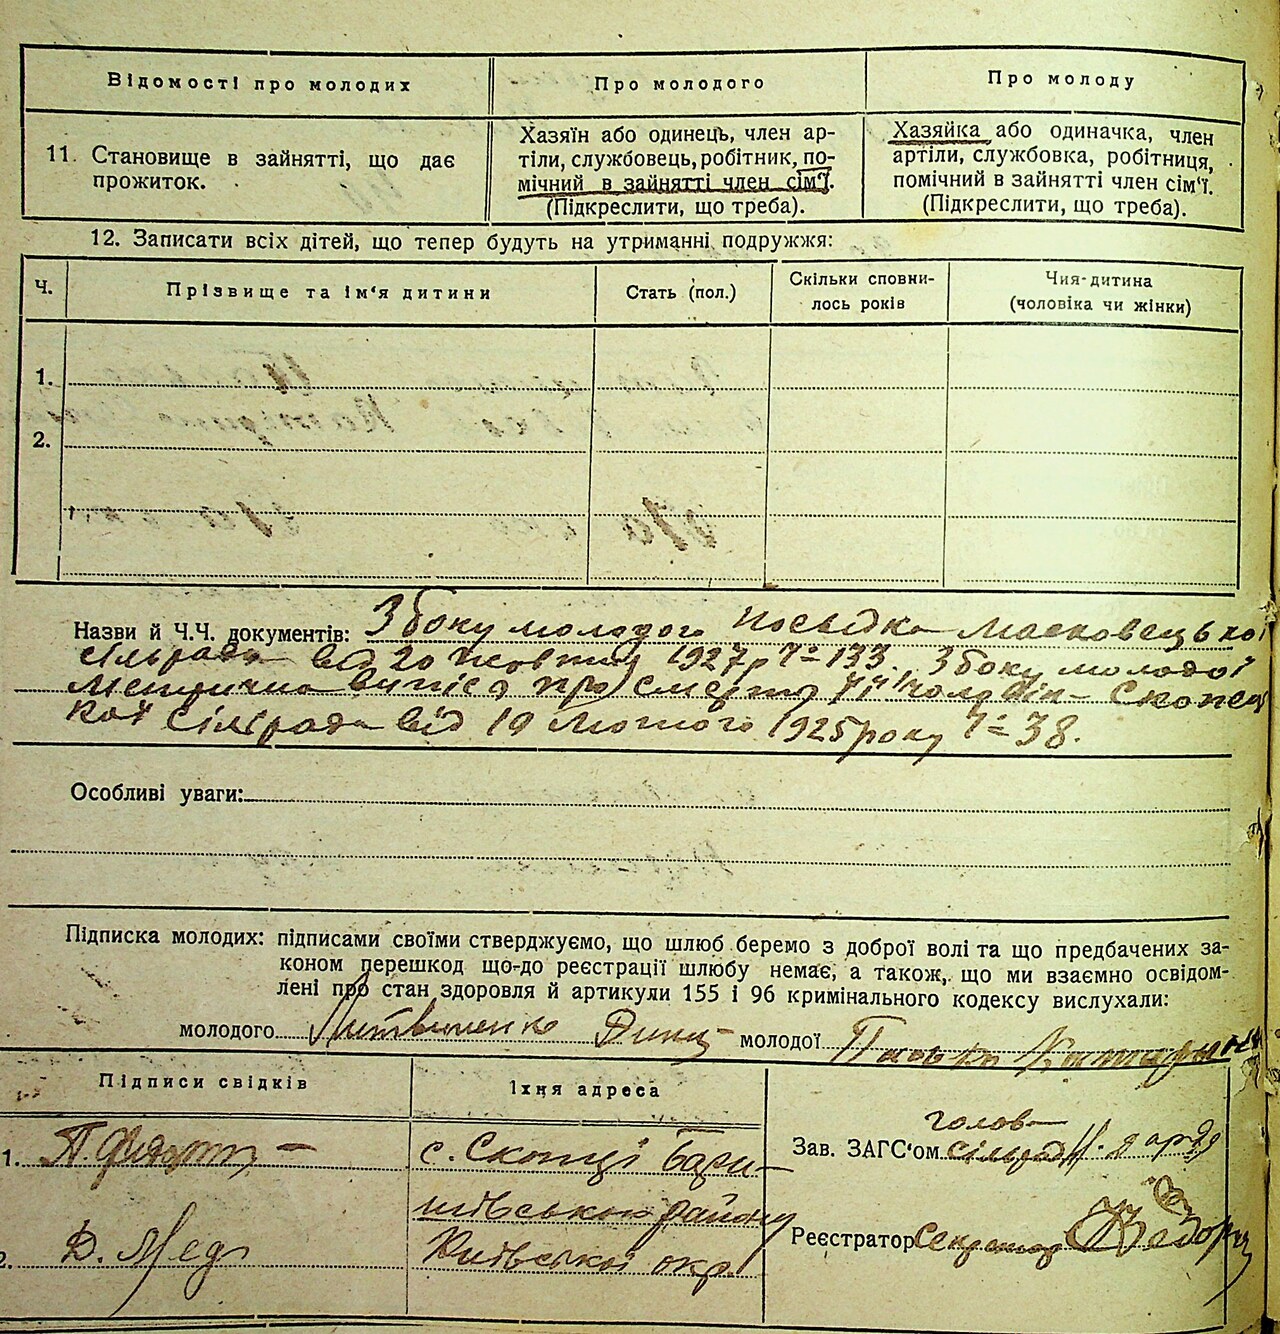 Відомості про молодих
Про молодого
Про молоду
11. Становище в зайнятті, що дає
прожиток.
Хазяїн або одинець, член ар-
тіли, службовець, робітник, по-
мічний в зайнятті член сім'ї.
(Підкреслити, що треба).
Хазяйка або одиначка, член
артіли, службовка, робітниця,
помічний в зайнятті член сім'ї.
(Підкреслити, що треба).
12. Записати всіх дітей, що тепер будуть на утриманні подружжя:
Ч.
Прізвище та ім'я дитини
Стать (пол.)
Скільки сповни-
лось років
Чия-дитина
(чоловіка чи жінки)
1.
2.
Назви й Ч.Ч. документів: З боку молодого посвідка
сільради від 20 жовтня 1927 р № 133. З боку молодої
Метрична випись про смерть її чоловіка
сільради від 19 Лютого 1925 року № 38.
Особливі уваги:
Підписка молодих: підписами своїми стверджуємо, що шлюб беремо з доброї волі та що предбачених за-
коном перешкод що-до реєстрації шлюбу немає, а також, що ми взаємно освідом-
лені про стан здоровля й артикули 155 і 96 кримінального кодексу вислухали:
молодого Литвиненко молодої
Підписи свідків
Їхня адреса
1. П.
с. Скопці Бари-
шівського району
Київської окр.
Д.
голова
Зав. ЗАГС'ом сільради
Реєстратор Секретар